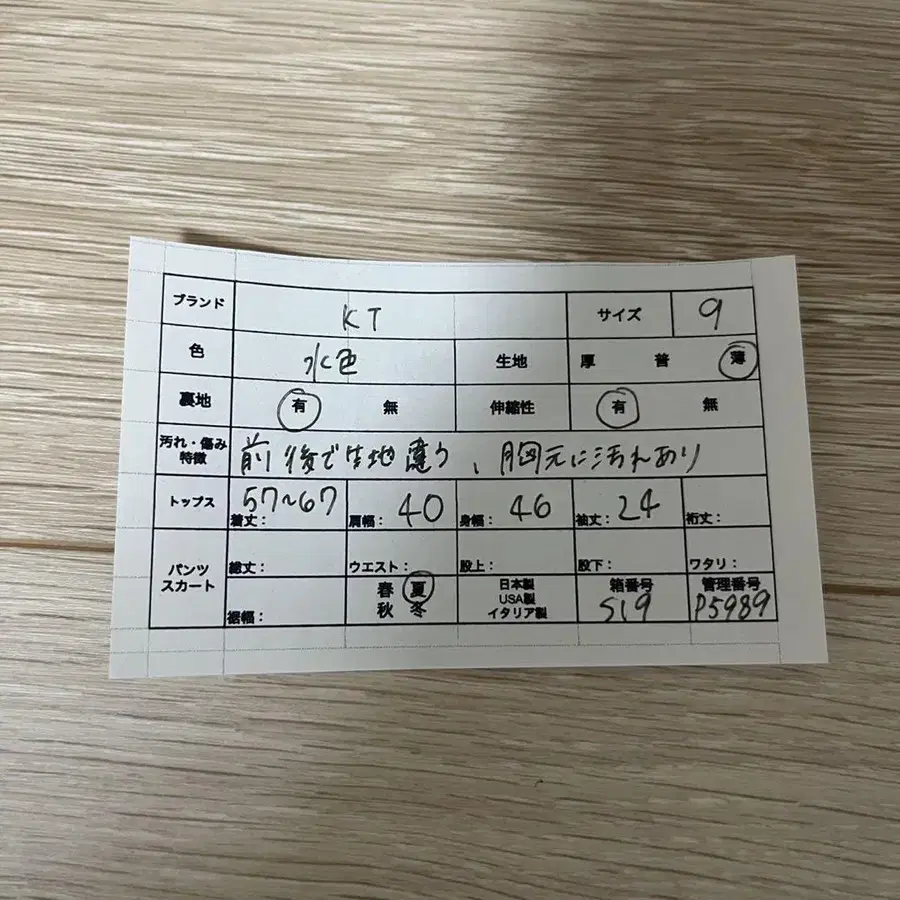 ブランド KT サイズ 9
色 水色 生地 厚 普 薄
裏地 有 無 伸縮性 有 無
汚れ・傷み
特徴 前後で生地違う、胸元に汚れあり
トップス 着丈: 57~67 肩幅: 40 身幅: 46 袖丈: 24 裄丈:
パンツ
スカート
総丈: ウエスト: 股上: 股下: ワタリ:
裾幅:
春 夏
秋 冬
日本製
USA製
イタリア製
箱番号
S19
管理番号
P5989